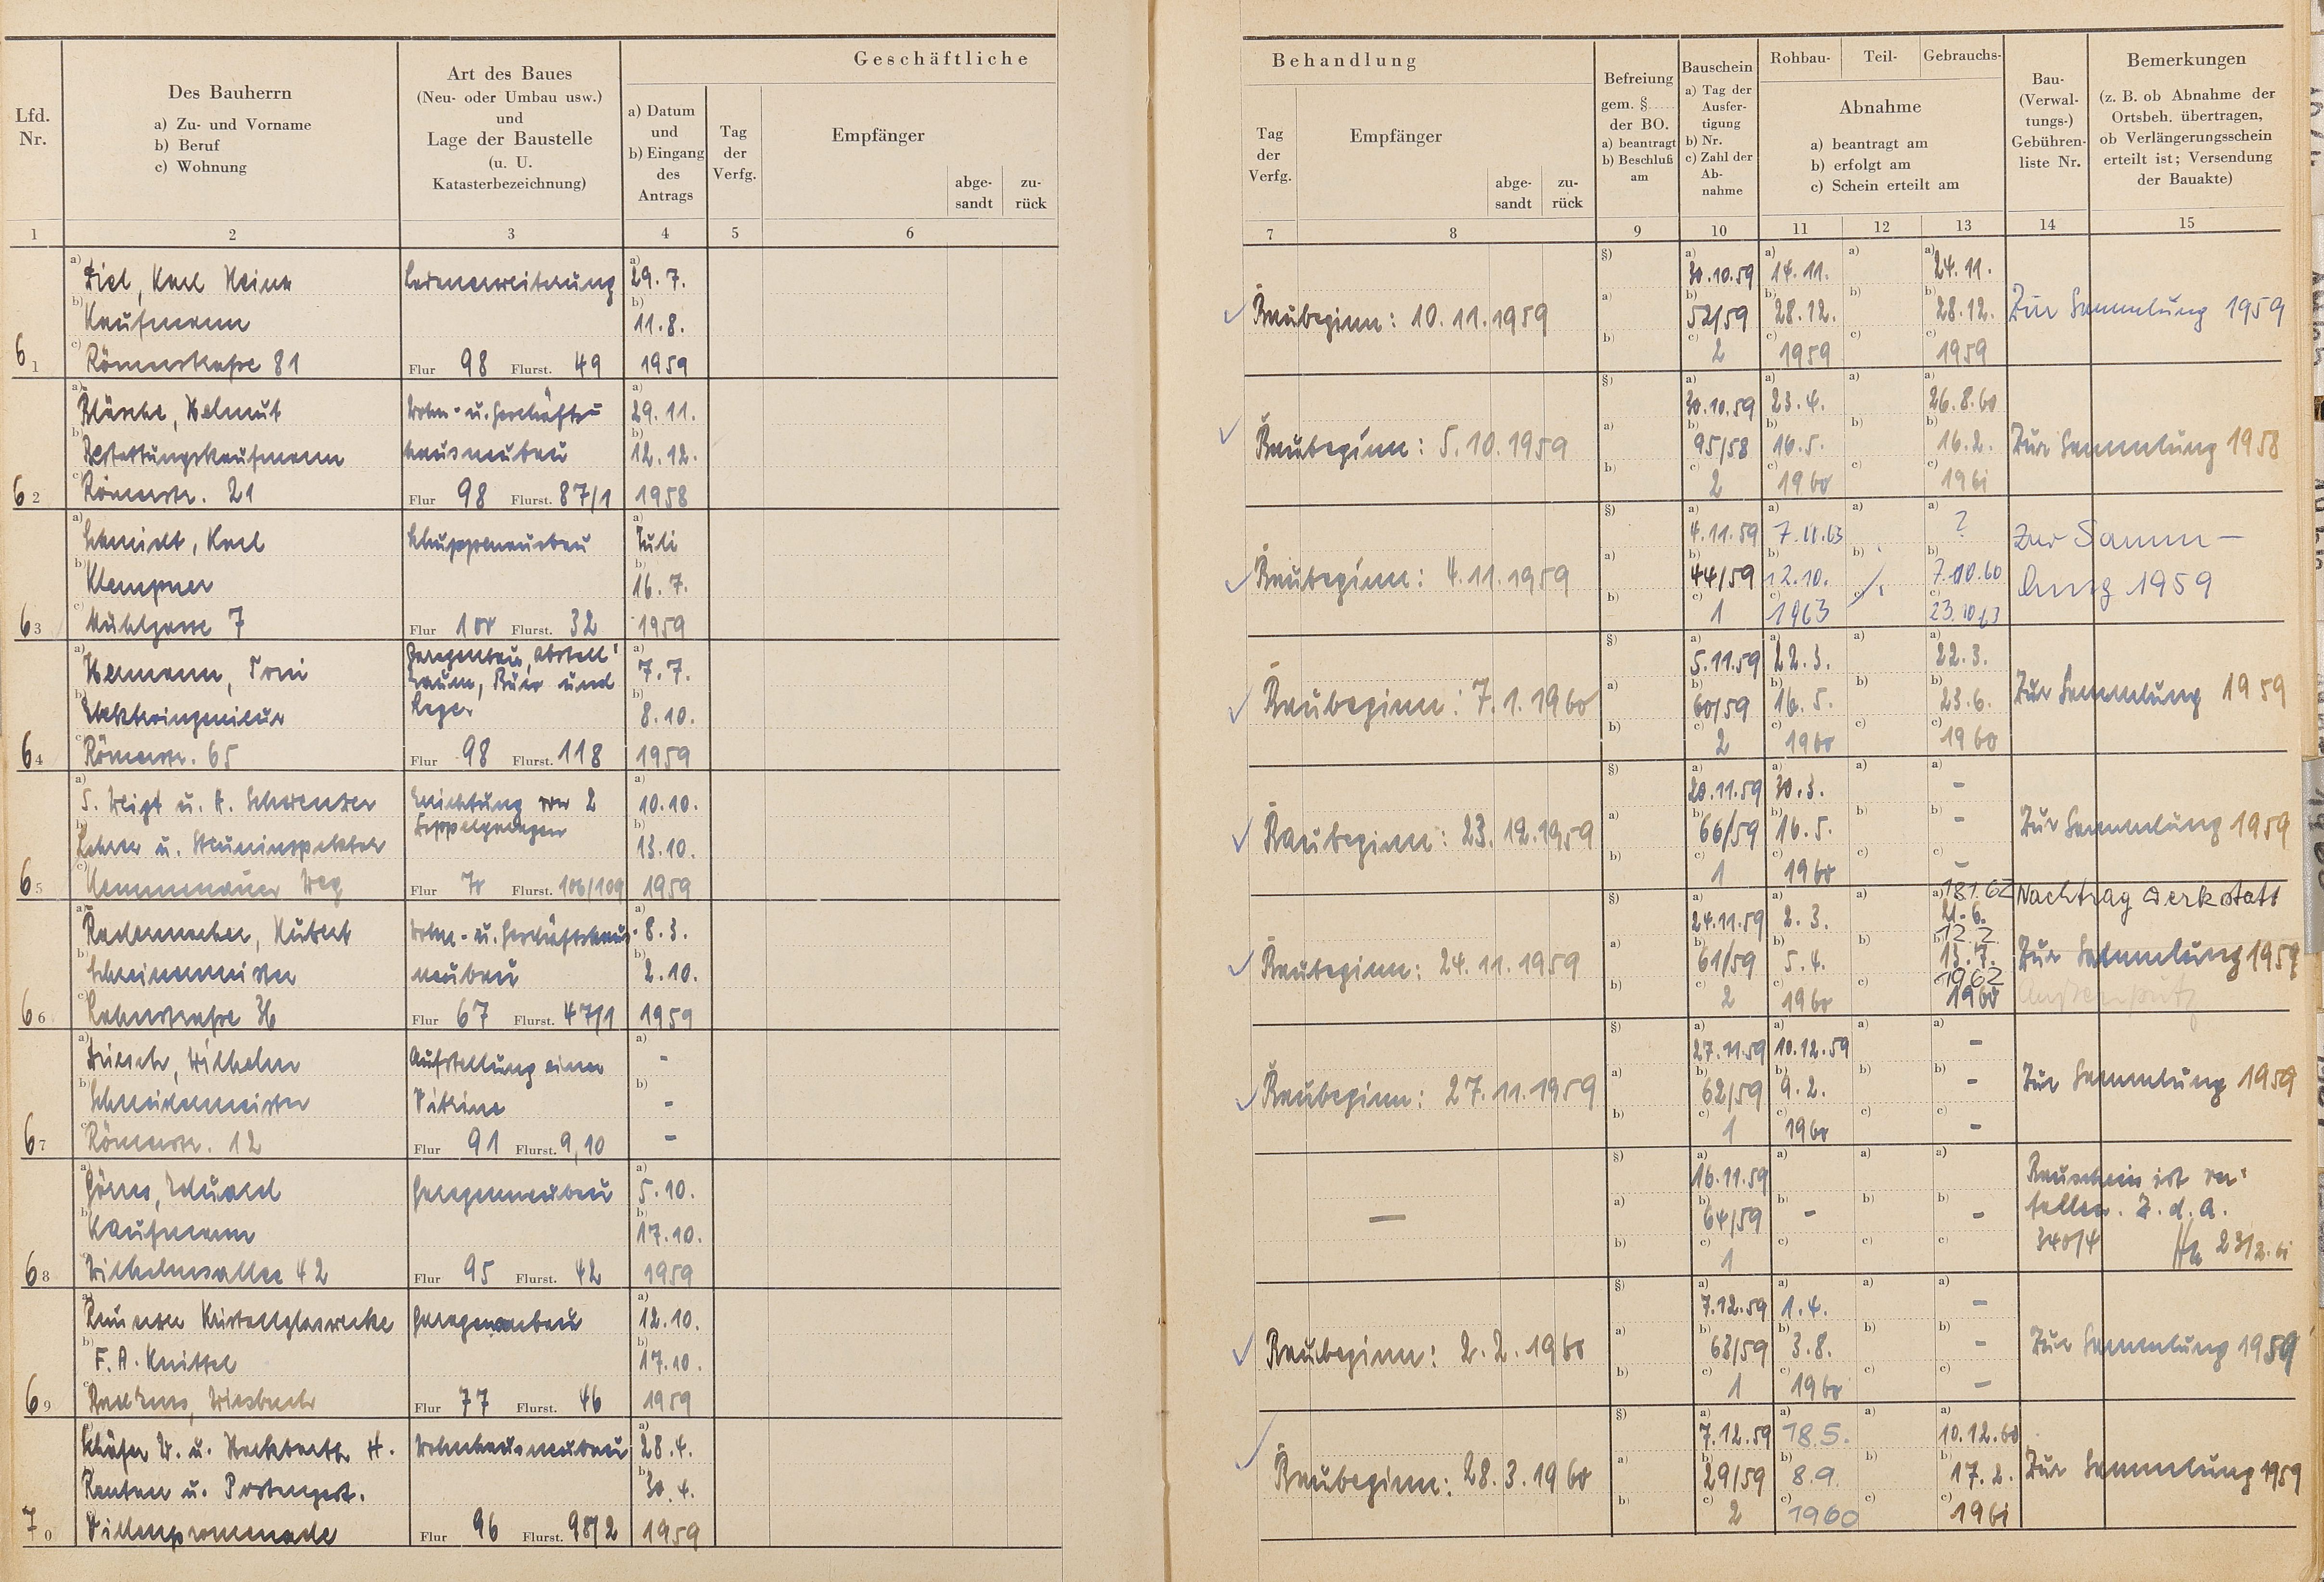 Geschäftliche
Lfd. Nr.
Des Bauherrn
a) Zu- und Vorname
b) Beruf
c) Wohnung
Art des Baues
(Neu- oder Umbau usw.)
und
Lage der Baustelle
(u. U.
Katasterbezeichnung)
a) Datum
und
b) Eingang
des
Antrags
Tag
der
Verfg.
Empfänger
abge-
sandt
zu-
rück
1 2 3 4 5 6
Behandlung
Tag
der
Verfg.
Empfänger
abge-
sandt
zu-
rück
Befreiung
gem. §
der BO.
a) beantragt
b) Beschluß
am
Bauschein
a) Tag der
Ausfer-
tigung
b) Nr.
c) Zahl der
Ab-
nahme
Rohbau- Teil- Gebrauchs-
Abnahme
a) beantragt am
b) erfolgt am
c) Schein erteilt am
Bau-
(Verwal-
tungs-)
Gebühren-
liste Nr.
Bemerkungen
(z. B. ob Abnahme der
Ortsbeh. übertragen,
ob Verlängerungsschein
erteilt ist; Versendung
der Bauakte)
7 8 9 10 11 12 13 14 15
61
a) Diel, Karl Heinz
b) Kaufmann
c) Römerstraße 81
Ladenerweiterung
Flur 98 Flurst. 49
a) 29.7.
b) 11.8.
1959
Baubeginn: 10.11.1959
a) 30.10.59
b) 52/59
c) 2
a) 14.11.
b) 28.12.
c) 1959
a) 24.11.
b) 28.12.
c) 1959
Zur Sammlung 1959
62
a) Helmut
b) Bestattungskaufmann
c) Römerstr. 21
Wohn- u. Geschäfts-
hausneubau
Flur 98 Flurst. 87/1
a) 29.11.
b) 12.12.
1958
Baubeginn: 5.10.1959
a) 30.10.59
b) 95/58
c) 2
a) 23.4.
b) 16.5.
c) 1960
a) 26.8.60
b) 16.2.
c) 1961
Zur Sammlung 1958
63
a) Schmidt, Karl
b) Klempner
c) 7
Flur 100 Flurst. 32
a) Juli
b) 16.7.
1959
Baubeginn: 4.11.1959
a) 4.11.59
b) 44/59
c) 1
a) 7.11.63
b) 12.10.
c) 1963
a) ?
b) 7.10.60
c) 23.10.63
Zur Samm-
lung 1959
64
a) Hermann, Toni
b) Elektroingenieur
c) Römerstr. 65
Garagenbau, Abstell-
raum, Büro und
Lager
Flur 98 Flurst. 118
a) 7.7.
b) 8.10.
1959
Baubeginn: 7.1.1960
a) 5.11.59
b) 60/59
c) 2
a) 22.3.
b) 16.5.
c) 1960
a) 22.3.
b) 23.6.
c) 1960
Zur Sammlung 1959
65
a) S. Weigt u. A.
b) Lehrer u. Steuerinspektor
c) Kemmenauer Weg
Errichtung von 2
Doppelgaragen
Flur 70 Flurst. 106/109
a) 10.10.
b) 13.10.
1959
Baubeginn: 23.12.1959
a) 20.11.59
b) 66/59
c) 1
a) 30.3.
b) 16.5.
c) 1960
a) -
b) -
c) -
Zur Sammlung 1959
66
a) Radermacher, Hubert
b) Schreinermeister
c) Lahnstraße 36
Wohn- u. Geschäftshaus-
neubau
Flur 67 Flurst. 47/1
a) 8.3.
b) 2.10.
1959
Baubeginn: 24.11.1959
a) 24.11.59
b) 61/59
c) 2
a) 2.3.
b) 5.4.
c) 1960
a) 18.1.62
21.6.
b) 12.2.
13.7.
c) 1962
1960
Nachtrag Werkstatt
Zur Sammlung 1959
Außenputz
67
a) Wilhelm
b) Schneidermeister
c) Römerstr. 12
Aufstellung einer
Vitrine
Flur 91 Flurst. 9,10
a) -
b) -
-
Baubeginn: 27.11.1959
a) 27.11.59
b) 62/59
c) 1
a) 10.12.59
b) 9.2.
c) 1960
a) -
b) -
c) -
Zur Sammlung 1959
68
a) Görres, Eduard
b) Kaufmann
c) Wilhelmsallee 42
Garagenneubau
Flur 95 Flurst. 42
a) 5.10.
b) 17.10.
1959
—
a) 16.11.59
b) 64/59
c) 1
-
-
Bauschein ist ver-
fallen. Z.d.A.
340/4 23/2.61
69
a) Kristallglaswerke
b) F. A. Knittel
c) Bad Ems, Wiesbach
Garagenanbau
Flur 77 Flurst. 46
a) 12.10.
b) 17.10.
1959
Baubeginn: 2.2.1960
a) 7.12.59
b) 63/59
c) 1
a) 1.4.
b) 3.8.
c) 1960
a) -
b) -
c) -
Zur Sammlung 1959
70
a) Schäfer W. u. H.
b) Rentner u. Postangest.
c) Villenpromenade
Wohnhausneubau
Flur 96 Flurst. 98/2
a) 28.4.
b) 30.4.
1959
Baubeginn: 28.3.1960
a) 7.12.59
b) 29/59
c) 2
a) 18.5.
b) 8.9.
c) 1960
a) 10.12.60
b) 17.2.
c) 1961
Zur Sammlung 1959